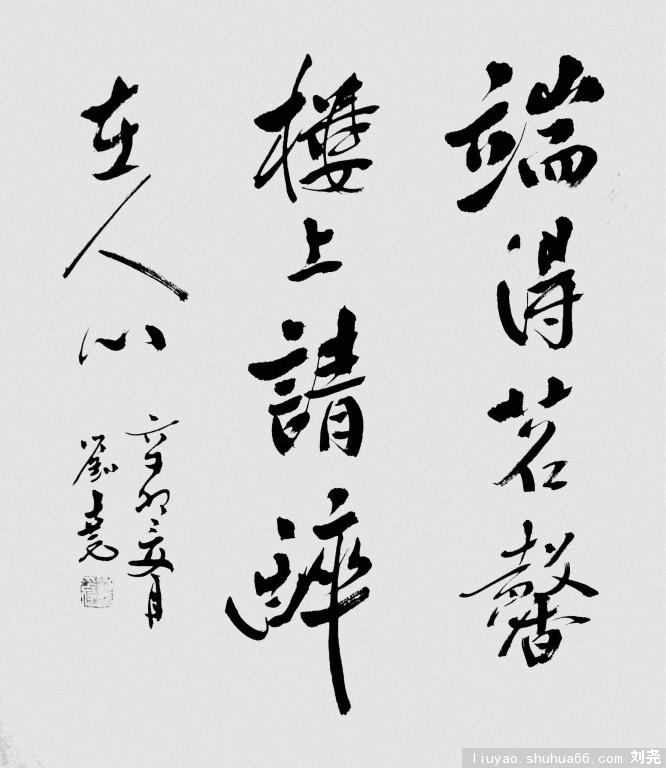 端得茗馨
樓上請醉
在人心
辛卯 月
劉堯
liuyao.shuhua66.com 刘尧